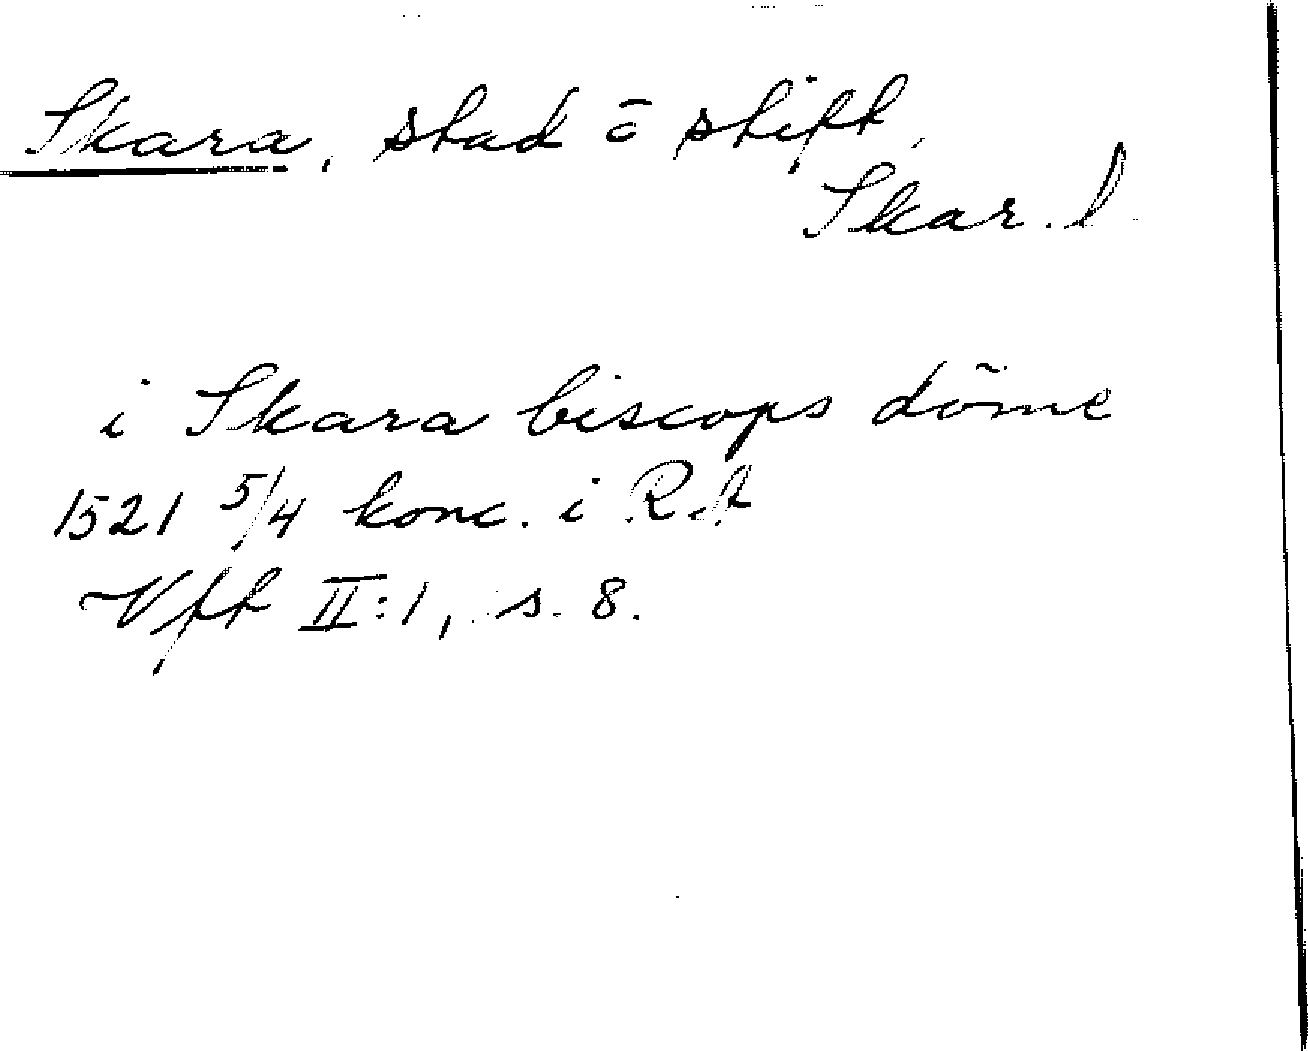 Skara, stad ō stift,
Skar. l.
i Skara biscops döme
1521 5/4 konc. i RA
Vff II:1, s. 8.